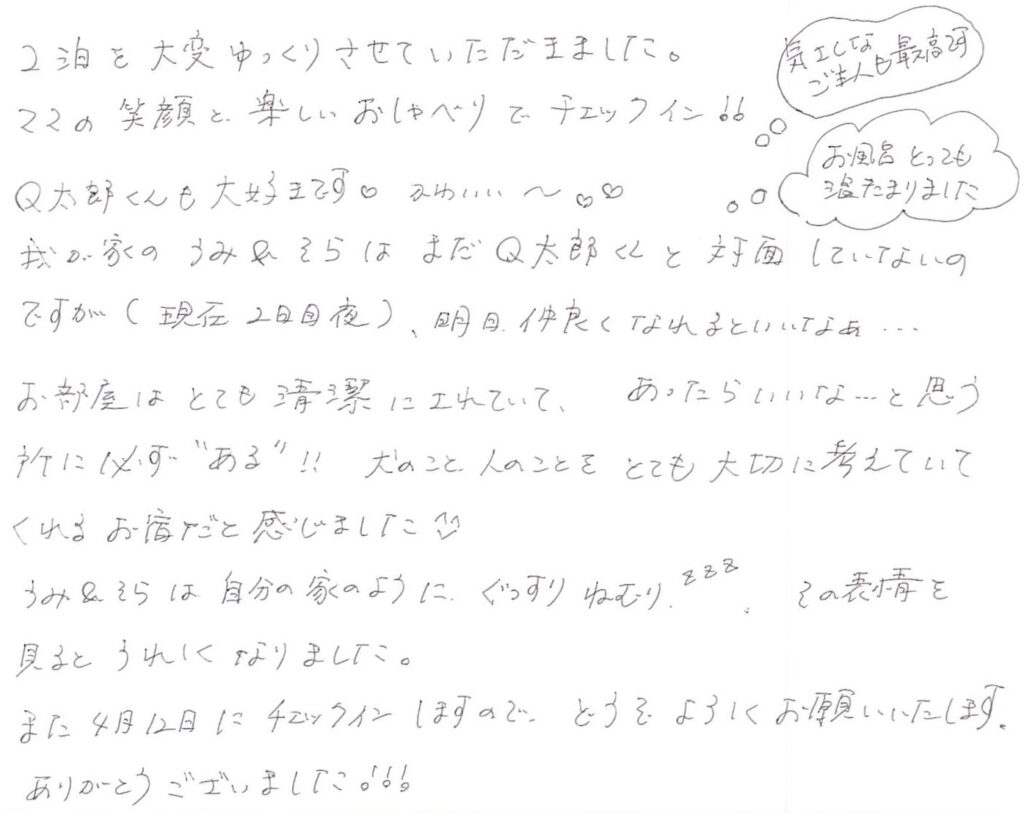 2泊を大変ゆっくりさせていただきました。
ママの笑顔と楽しいおしゃべりでチェックイン!!
気さくな
ご主人も最高です
お風呂とっても
温たまりました
Q太郎くんも大好きです♡ かわいい〜♡♡
我が家のうみ&そらはまだQ太郎くんと対面していないの
ですが(現在2日目夜)、明日仲良くなれるといいなぁ…
お部屋はとても清潔にされていて、あったらいいな…と思う
所に必ず“ある”!! 犬のこと人のことをとても大切に考えていて
くれるお宿だと感じました
うみ&そらは自分の家のように ぐっすりねむり zzz 、その表情を
見るとうれしくなりました。
また4月12日にチェックインしますので、どうぞよろしくお願いいたします。
ありがとうございました!!!